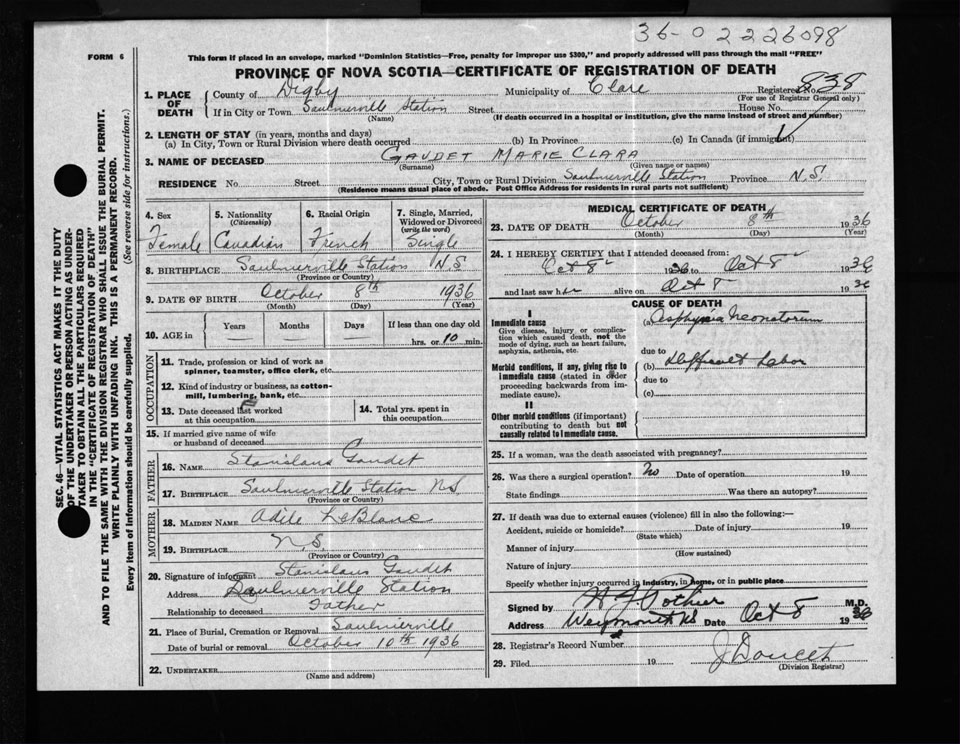 36-02226098
FORM 6
This form if placed in an envelope, marked "Dominion Statistics—Free, penalty for improper use $300," and properly addressed will pass through the mail "FREE"
PROVINCE OF NOVA SCOTIA—CERTIFICATE OF REGISTRATION OF DEATH
1. PLACE OF DEATH
County of Digby Municipality of Clare Registered No. 838
(For use of Registrar General only)
If in City or Town Saulnierville Station Street House No.
(Name) (If death occurred in a hospital or institution, give the name instead of street and number)
2. LENGTH OF STAY (in years, months and days)
(a) In City, Town or Rural Division where death occurred (b) In Province (c) In Canada (if immigrant)
3. NAME OF DECEASED GAUDET MARIE CLARA
(Surname) (Given name or names)
RESIDENCE No. Street City, Town or Rural Division Saulnierville Station Province N.S.
(Residence means usual place of abode. Post Office Address for residents in rural parts not sufficient)
4. Sex Female
5. Nationality (Citizenship) Canadian
6. Racial Origin French
7. Single, Married, Widowed or Divorced (write the word) Single
8. BIRTHPLACE Saulnierville Station N.S
(Province or Country)
9. DATE OF BIRTH October 8th 1936
(Month) (Day) (Year)
10. AGE in Years Months Days If less than one day old
hrs. or 10 min.
OCCUPATION
11. Trade, profession or kind of work as spinner, teamster, office clerk, etc.
12. Kind of industry or business, as cotton-mill, lumbering, bank, etc.
13. Date deceased last worked at this occupation
14. Total yrs. spent in this occupation
15. If married give name of wife or husband of deceased
FATHER
16. NAME Stanislaus Gaudet
17. BIRTHPLACE Saulnierville Station N.S.
(Province or Country)
MOTHER
18. MAIDEN NAME Adele LeBlanc
19. BIRTHPLACE N.S.
(Province or Country)
20. Signature of informant Stanislaus Gaudet
Address Saulnierville Station
Relationship to deceased Father
21. Place of Burial, Cremation or Removal Saulnierville
Date of burial or removal October 10th 1936
22. UNDERTAKER
(Name and address)
MEDICAL CERTIFICATE OF DEATH
23. DATE OF DEATH October 8th 1936
(Month) (Day) (Year)
24. I HEREBY CERTIFY that I attended deceased from:
Oct 8 1936 to Oct 8 1936
and last saw her alive on Oct 8 1936
CAUSE OF DEATH
I
Immediate cause
Give disease, injury or complication which caused death, not the mode of dying, such as heart failure, asphyxia, asthenia, etc.
(a) Asphyxia Neonatorum
due to
Morbid conditions, if any, giving rise to immediate cause (stated in order proceeding backwards from immediate cause).
(b) Difficult Labor
due to
(c)
II
Other morbid conditions (if important) contributing to death but not causally related to immediate cause.
25. If a woman, was the death associated with pregnancy?
26. Was there a surgical operation? No Date of operation 19
State findings Was there an autopsy?
27. If death was due to external causes (violence) fill in also the following:—
Accident, suicide or homicide? Date of injury 19
(State which)
Manner of injury
(How sustained)
Nature of injury
Specify whether injury occurred in industry, in home, or in public place
Signed by Pothier M.D.
Address Weymouth NS Date Oct 8 1936
28. Registrar's Record Number
29. Filed 19 J Doucet
(Division Registrar)
SEC. 46—VITAL STATISTICS ACT MAKES IT THE DUTY
OF THE UNDERTAKER OR PERSON ACTING AS UNDER-
TAKER TO OBTAIN ALL THE PARTICULARS REQUIRED
IN THE "CERTIFICATE OF REGISTRATION OF DEATH"
AND TO FILE THE SAME WITH THE DIVISION REGISTRAR WHO SHALL ISSUE THE BURIAL PERMIT.
WRITE PLAINLY WITH UNFADING INK. THIS IS A PERMANENT RECORD.
Every item of information should be carefully supplied. (See reverse side for instructions.)